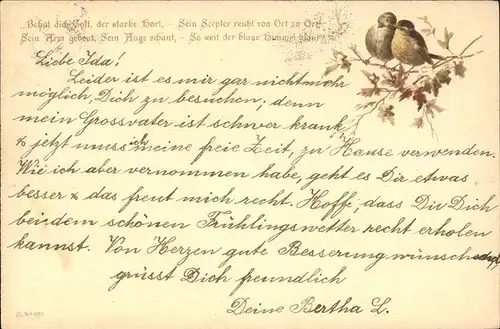 dich Gott, der starke Hort, - Sein Scepter reicht von Ort zu Ort
Sein Arm gebeut, Sein Auge schaut, - So weit der blaue Himmel blaut.
Liebe Ida!
Leider ist es mir gar nicht mehr
möglich, Dich zu besuchen, denn
mein Grossvater ist schwer krank
& jetzt muss ich meine freie Zeit, zu Hause verwenden.
Wie ich aber vernommen habe, geht es Dir etwas
besser & das freut mich recht. Hoffe, dass Du Dich
bei dem schönen Frühlingswetter recht erholen
kannst. Von Herzen gute Besserung wünschend
grüsst Dich freundlich
Deine Bertha L.